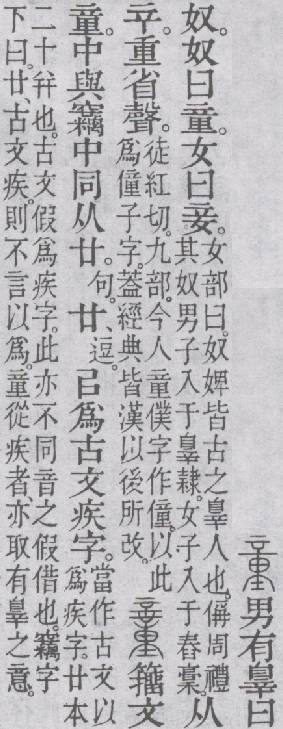 童男有辠曰
奴。奴曰童。女曰妾。
女部曰。奴婢皆古之辠人也。偁周禮
其奴男子入于辠隸。女子入于舂藁。
从
䇂。重省聲。
徒紅切。九部。今人童僕字作僮。以此
爲僮子字。葢經典皆漢以後所改。
童籒文
童。中與竊中同从廿。句。廿、逗。㠯爲古文疾字。
當作古文以
爲疾字。廿本
二十幷也。古文假爲疾字。此亦不同音之假借也。竊字
下曰。廿、古文疾。則不言以爲。童從疾者、亦取有辠之意。